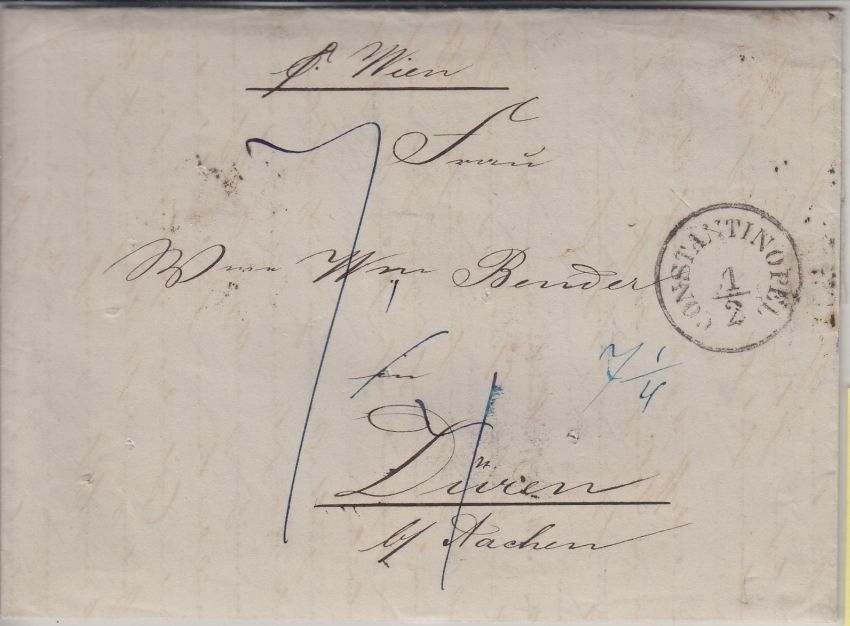 p. Wien
Frau
Wwe Wm Bender
in
Düren
b/ Aachen
CONSTANTINOPEL
1/2
7
7 1/4